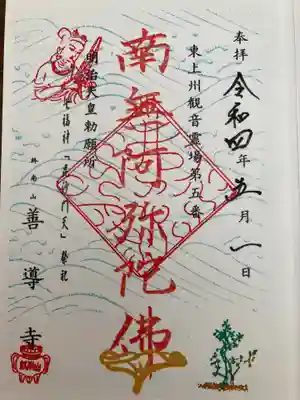 奉拝
令和四年五月一日
東上州観音霊場第五番
南無阿弥陀佛
明治天皇勅願所
七福神「毘沙門天」奉祀
終南山
善導寺